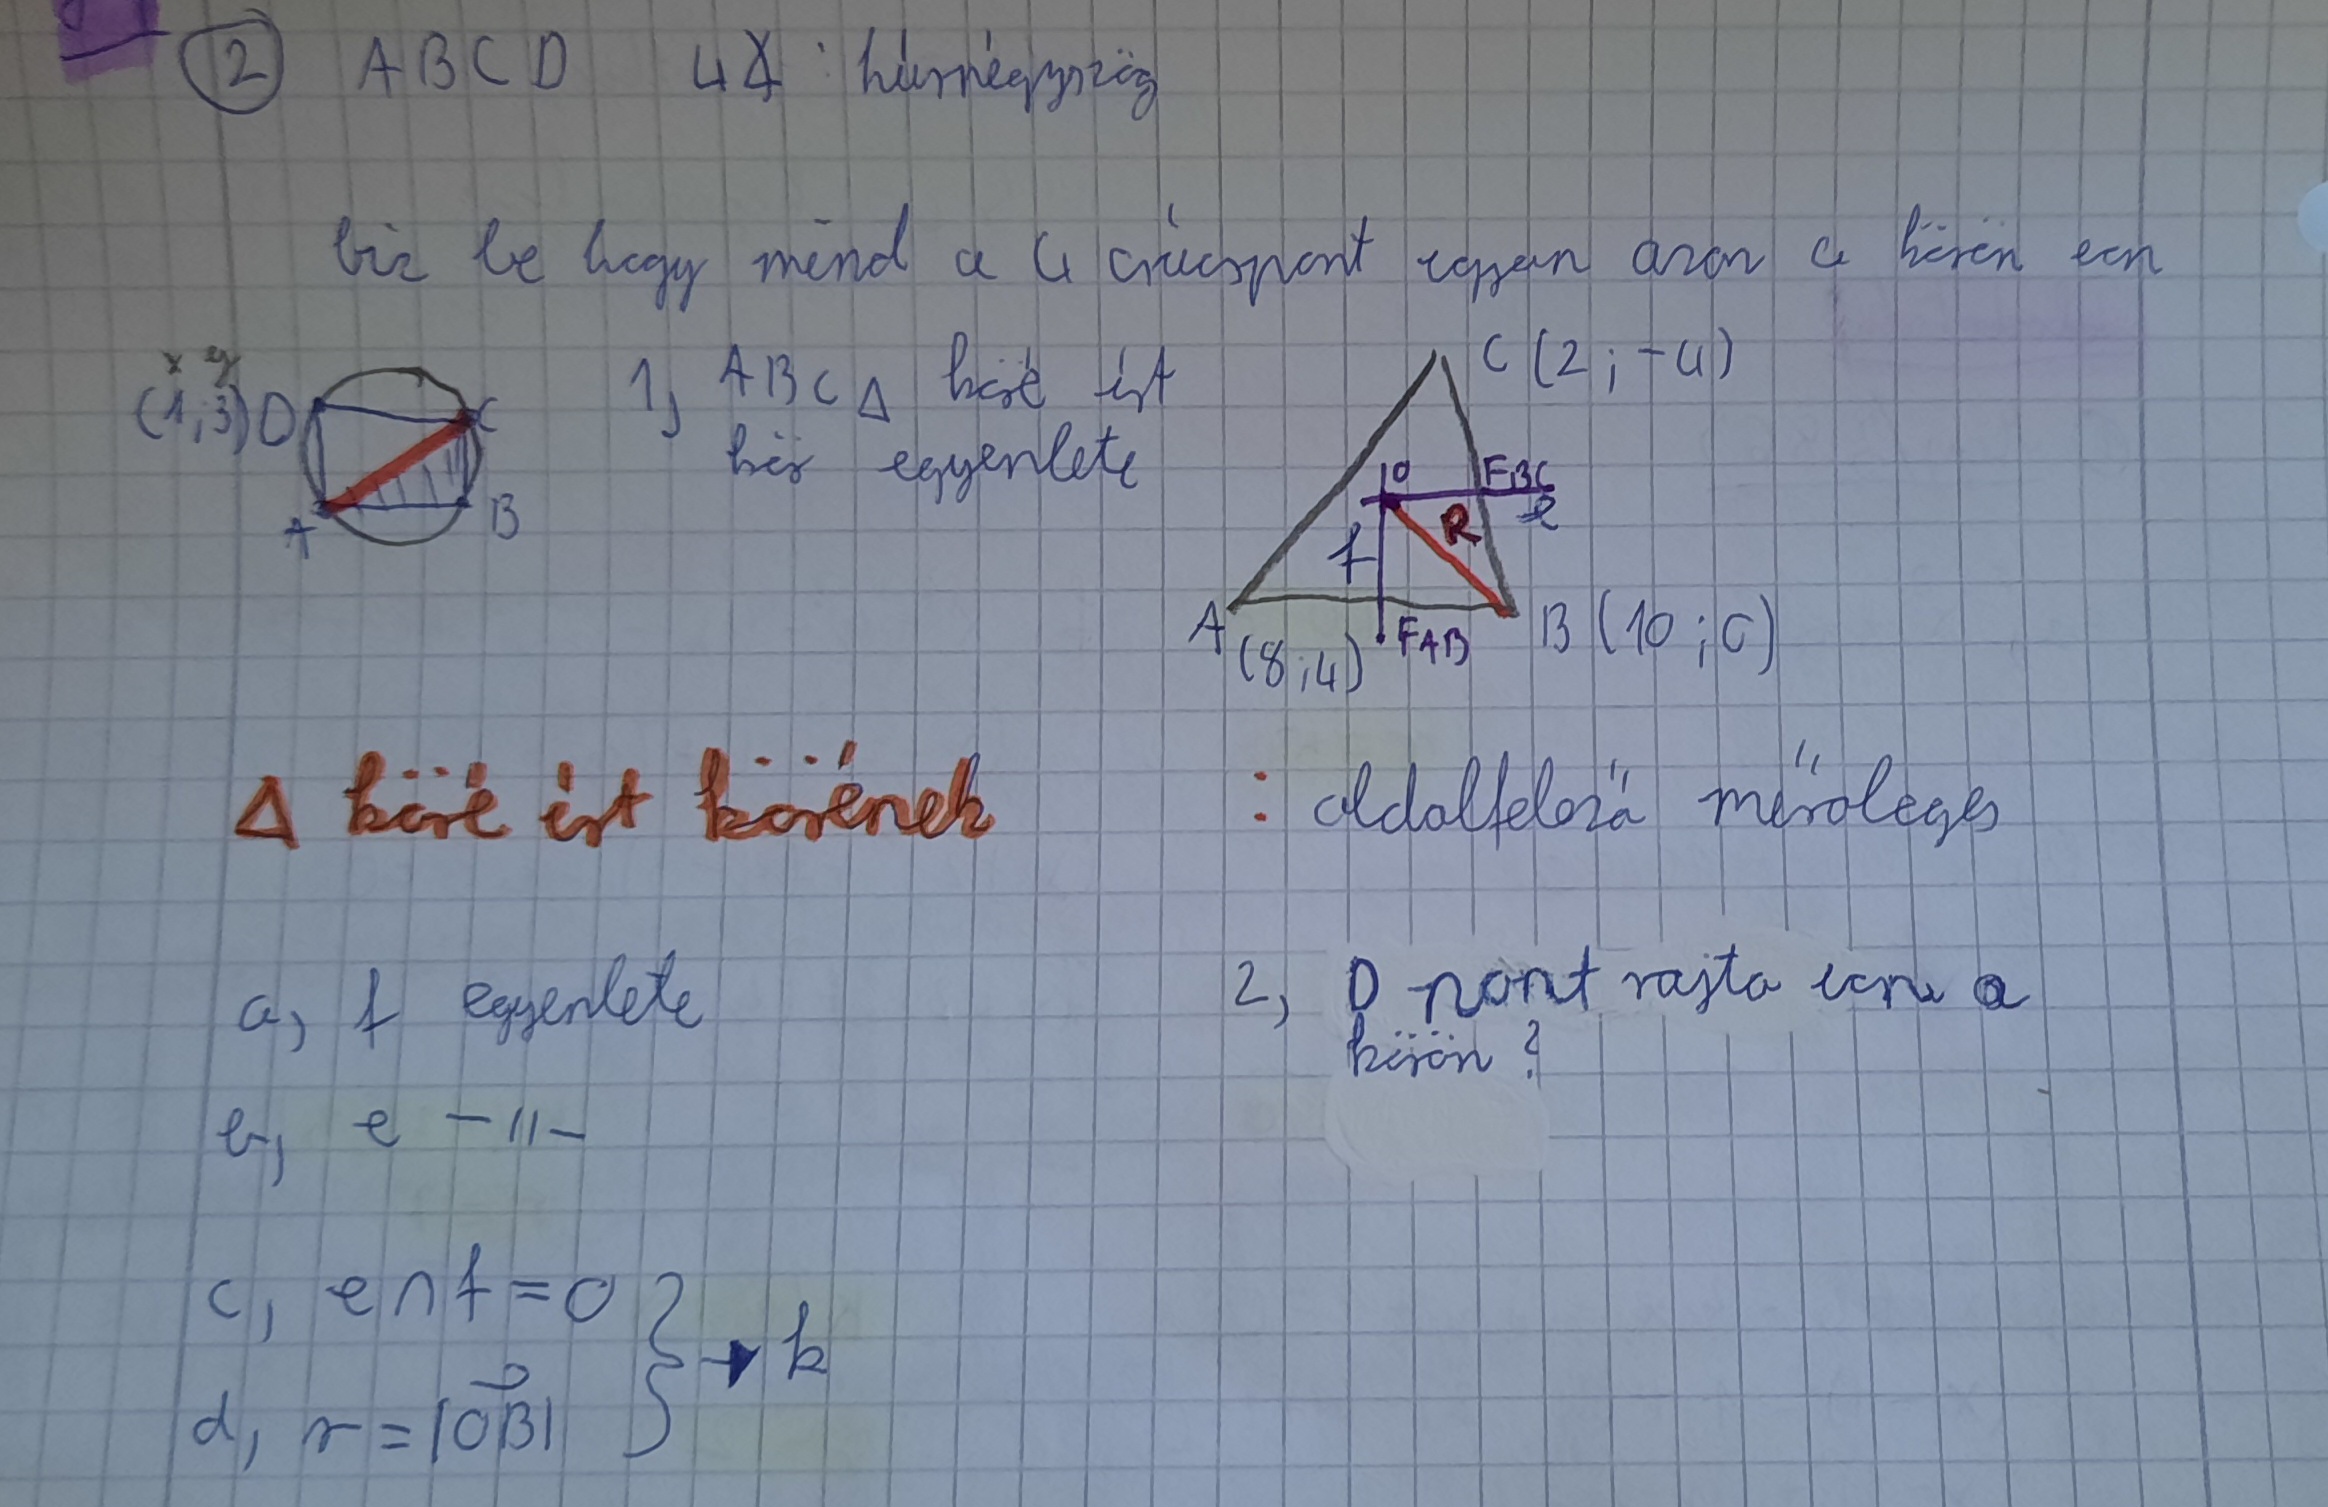 ② ABCD 4∡: húrnégyszög
biz be hogy mind a 4 csúcspont ugyan azon a körön van
x y
(1;3) D C
A B
1, ABC△ köré írt
kör egyenlete
C (2;-4)
O F_BC
e
R
f
A (8;4) F_AB B (10;0)
△ köré írt körének : oldalfelező merőleges
a, f egyenlete
b, e -"-
c, e∩f=O } → k
d, r=|OB⃗|
2, D pont rajta van a
körön?